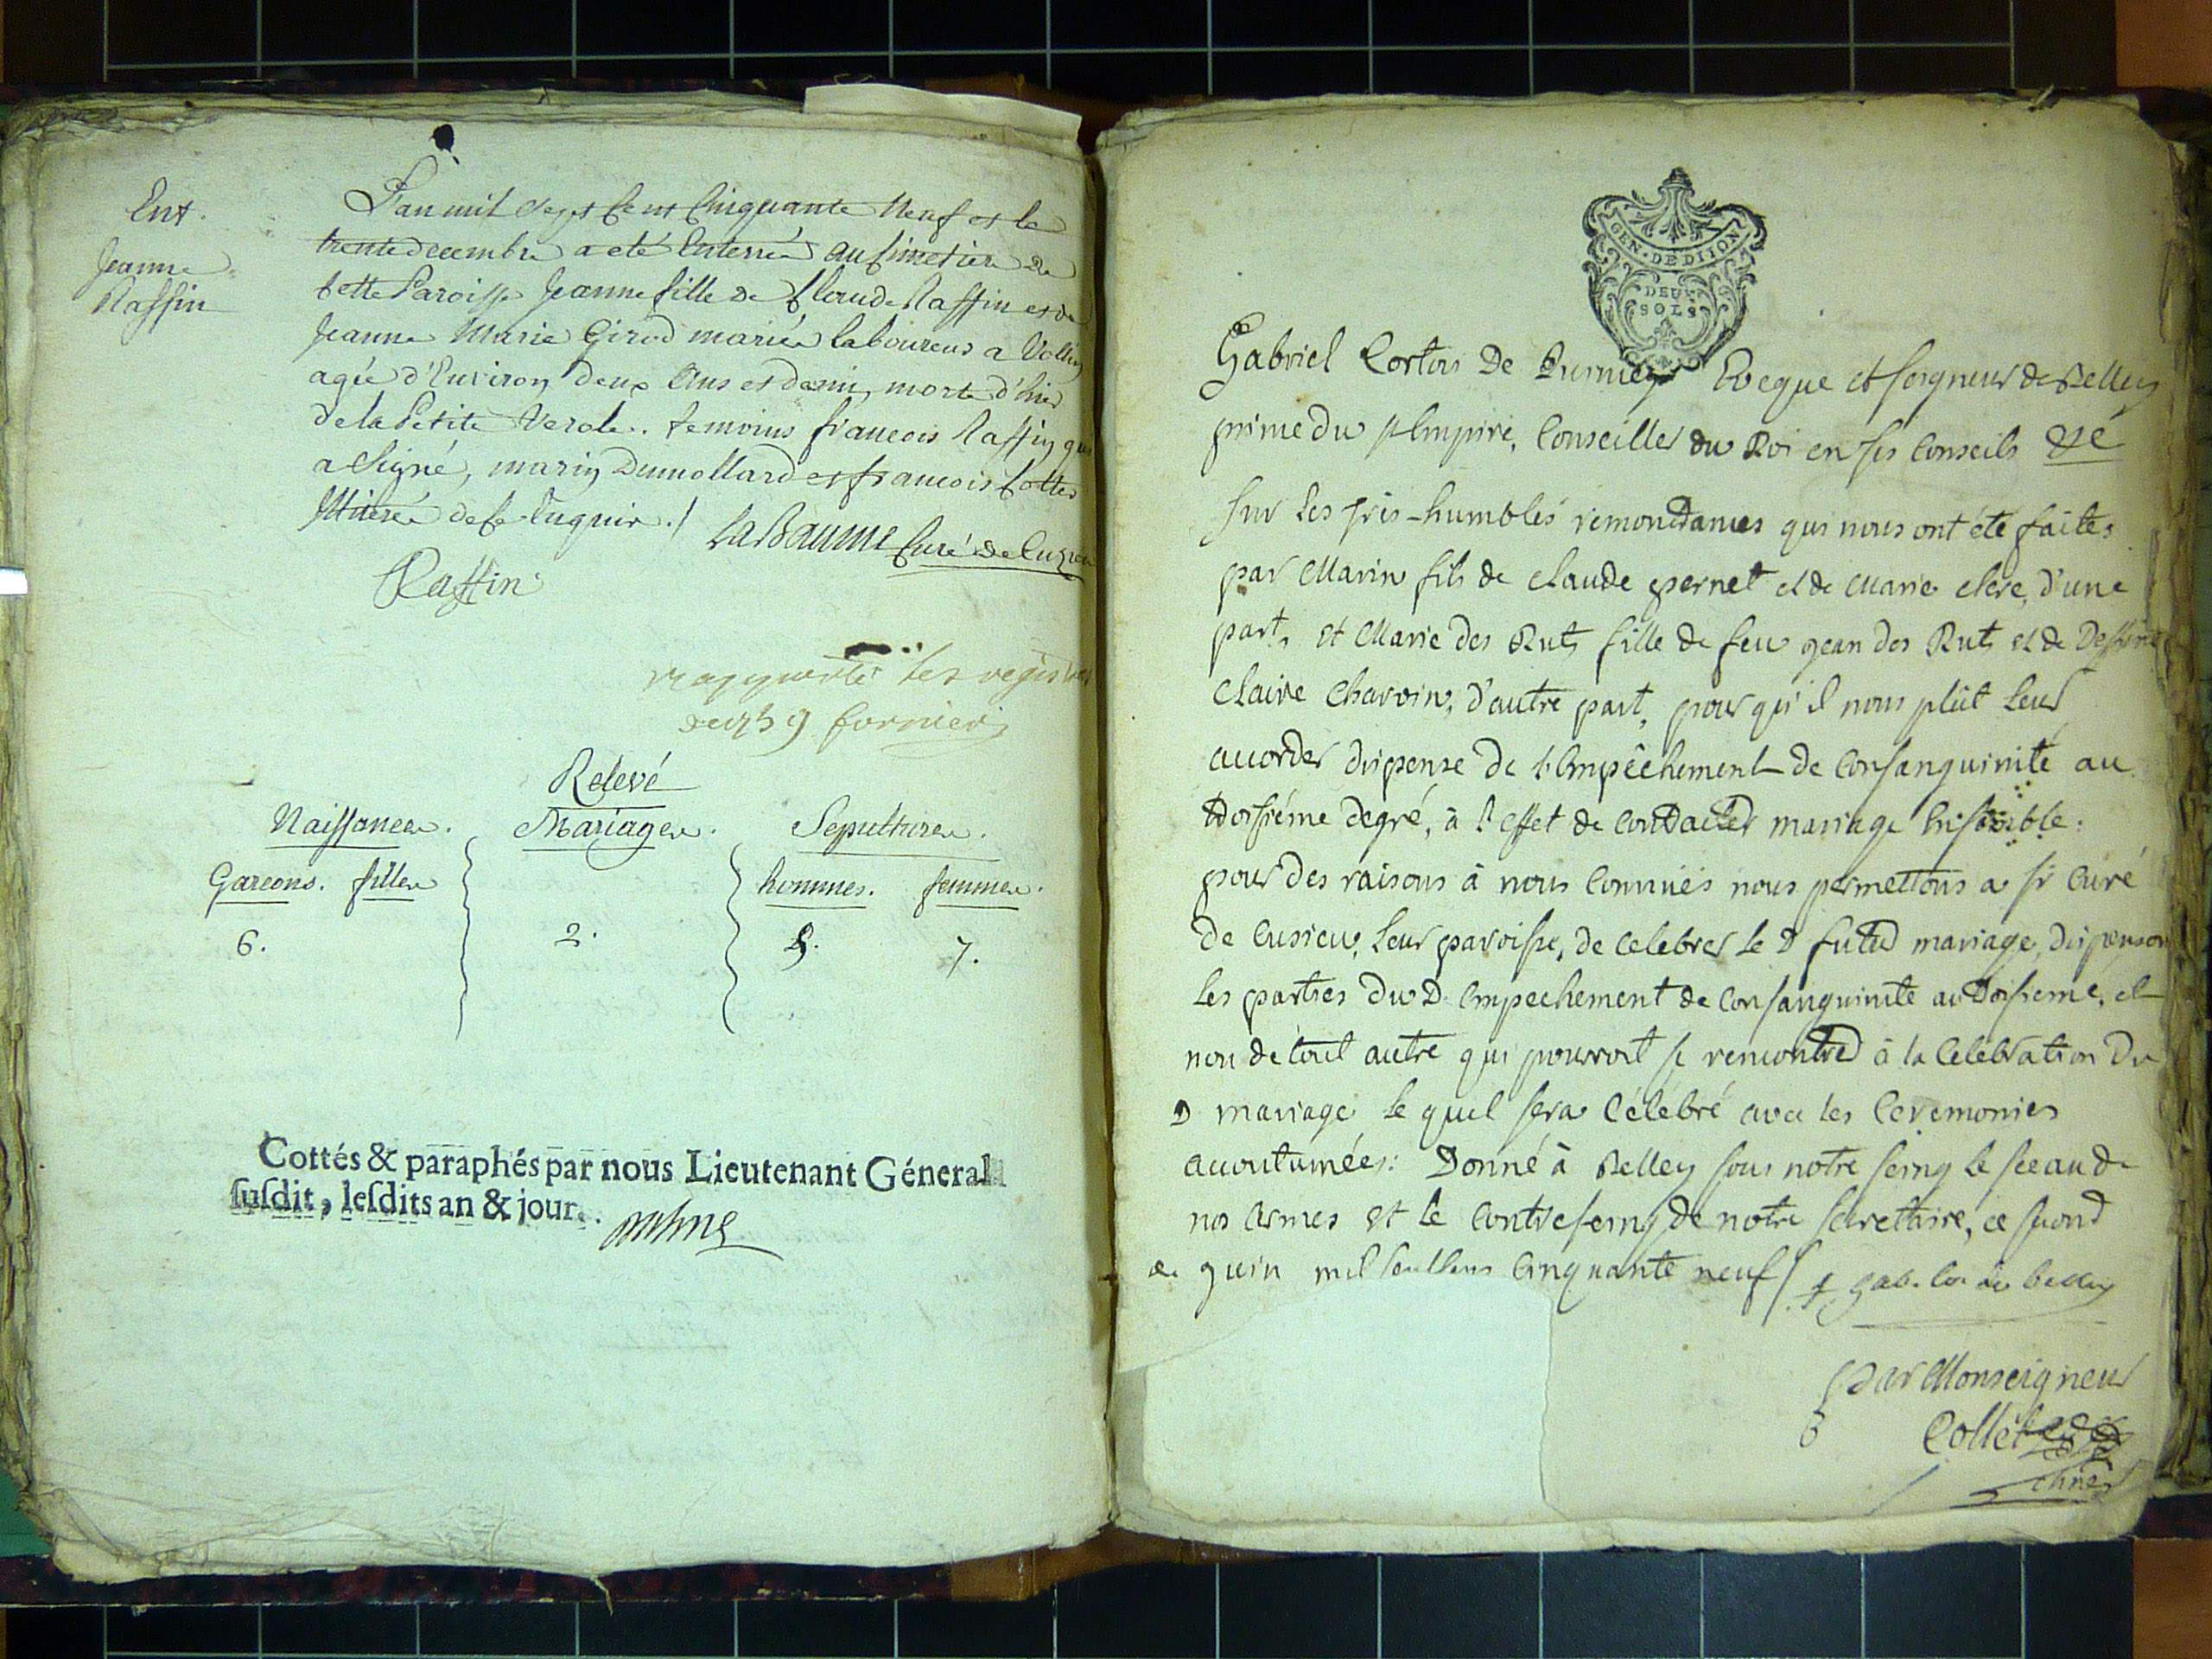 Ent.
Jeanne
Raffin
L'an mil sept cent cinquante neuf et le
trente decembre a eté enterrée au simetiere de
cette Paroisse Jeanne fille de Claude Raffin et de
Jeanne Marie Girod mariés laboureurs a Vollien
agée d'environ deux ans et demi, morte d'hier
de la Petite Verole. temoins francois Raffin qui
a signé, marin Dumollard et francois Cottet
illiterés de ce enquis./ LaBaume Curé de Cuzieu
Raffin
rapporté les registres
fornier
Relevé
Naissances. Mariages. Sepultures.
Garcons. filles hommes. femmes.
6. 2. 8. 7.
Cottés & paraphés par nous Lieutenant Géneral
susdit, lesdits an & jour.
GEN. DE DIJON
DEUX
SOLS
Gabriel Cortois De Quincey Eveque et seigneur de Belley
prince du st Empire, Conseiller du Roi en ses Conseils &c
sur les très-humbles remontrances qui nous ont été faites
par Marin fils de Claude pernet et de Marie clerc, d'une
part, et Marie des Ruts fille de feu jean des Ruts et de Deffunte
Claire Charvin, d'autre part, pour qu'il nous plût leur
accorder dispense de l'Empêchement de Consanguinité au
troisiéme degré, à l'effet de contracter mariage Ensemble:
pour des raisons à nous Connuës nous permettons a sr Curé
de Cusieu, leur paroisse, de celebrer le D futur mariage, dispensons
les parties du D. Empechement de Consanguinité au troisieme, et
non de tout autre qui pourroit se rencontrer à la Celebration du
D mariage le quel sera Célébré avec les Ceremonies
accoutumées: Donné à Belley sous notre seing le sceau de
nos armes et le Contreseing de notre secretaire, ce second
juin mil sept cens Cinquante neuf / + gab. Ev. de belley
Par Monseigneur
Collet